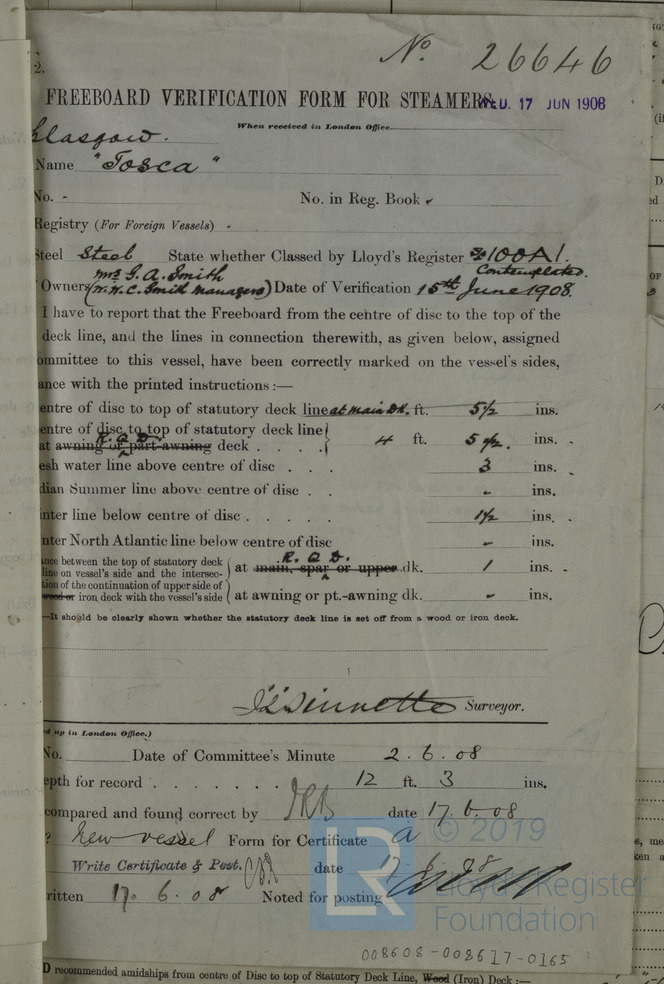 No. 26646
2.
FREEBOARD VERIFICATION FORM FOR STEAMERS. WED. 17 JUN 1908
When received in London Office
Glasgow.
Name "Tosca"
No. - No. in Reg. Book
Registry (For Foreign Vessels) -
Steel Steel State whether Classed by Lloyd's Register 100A1.
Contemplated.
Mrs G. A. Smith
Owners (W.H.C. Smith Managers) Date of Verification 15th June 1908.
I have to report that the Freeboard from the centre of disc to the top of the
deck line, and the lines in connection therewith, as given below, assigned
ommittee to this vessel, have been correctly marked on the vessel's sides,
ance with the printed instructions :—
entre of disc to top of statutory deck line at main Dk. ft. 5½ ins.
entre of disc to top of statutory deck line
R. Q. D.
at awning or part-awning deck . . . . 4 ft. 5½. ins.
esh water line above centre of disc . . . 3 ins.
dian Summer line above centre of disc . . - ins.
nter line below centre of disc . . . . . 1½ ins.
nter North Atlantic line below centre of disc - ins.
R. Q. D.
ance between the top of statutory deck
line on vessel's side and the intersec- at main, spar or upper dk. 1 ins.
tion of the continuation of upper side of
wood or iron deck with the vessel's side at awning or pt.-awning dk. - ins.
—It should be clearly shown whether the statutory deck line is set off from a wood or iron deck.
Surveyor.
d up in London Office.)
No. Date of Committee's Minute 2.6.08
epth for record . . . . . . . 12 ft. 3 ins.
compared and found correct by date 17.6.08
? New vessel Form for Certificate a
Write Certificate & Post. date 17.6.08
ritten 17.6.08 Noted for posting
© 2019
LR
Lloyd's Register
Foundation
008608-008617-0165
D recommended amidships from centre of Disc to top of Statutory Deck Line, Wood (Iron) Deck :—